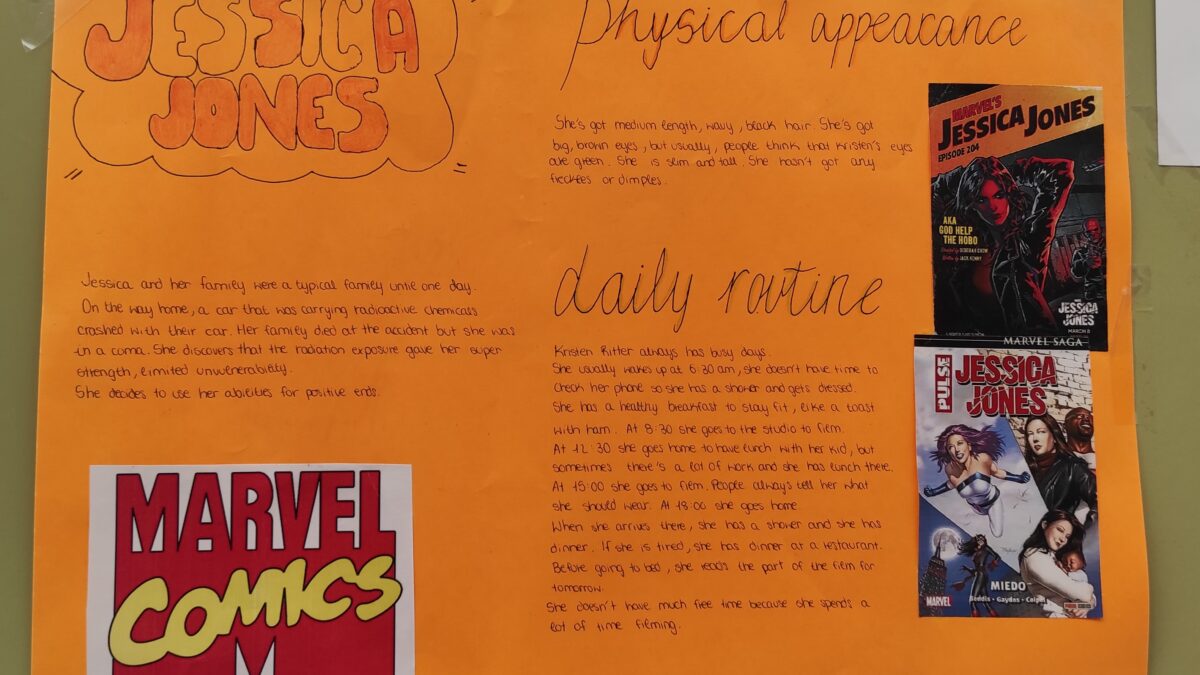 JESSICA
JONES
Jessica and her family were a typical family until one day.
On the way home, a car that was carrying radioactive chemicals
crashed with their car. Her family died at the accident but she was
in a coma. She discovers that the radiation exposure gave her super
strength, limited unvunerability.
She decides to use her abilities for positive ends.
MARVEL
COMICS
Physical appearance
She's got medium length, wavy, black hair. She's got
big, brown eyes, but usually, people think that Kristen's eyes
are green. She is slim and tall. She hasn't got any
freckles or dimples.
daily routine
Kristen Ritter always has busy days.
She usually wakes up at 6:30 am, she doesn't have time to
check her phone so she has a shower and gets dressed.
She has a healthy breakfast to stay fit, like a toast
with ham. At 8:30 she goes to the studio to film.
At 12:30 she goes home to have lunch with her kid, but
sometimes there's a lot of work and she has lunch there.
At 15:00 she goes to film. People always tell her what
she should wear. At 18:00 she goes home.
When she arrives there, she has a shower and she has
dinner. If she is tired, she has dinner at a restaurant.
Before going to bed, she reads the part of the film for
tomorrow.
She doesn't have much free time because she spends a
lot of time filming.
MARVEL'S
JESSICA JONES
EPISODE 204
AKA
GOD HELP
THE HOBO
Directed by DEBORAH CHOW
Written by JACK KENNY
JESSICA
JONES
MARCH 8
MARVEL SAGA
PULSE
JESSICA
JONES
MIEDO
Bendis · Gaydos · Coipel
MARVEL